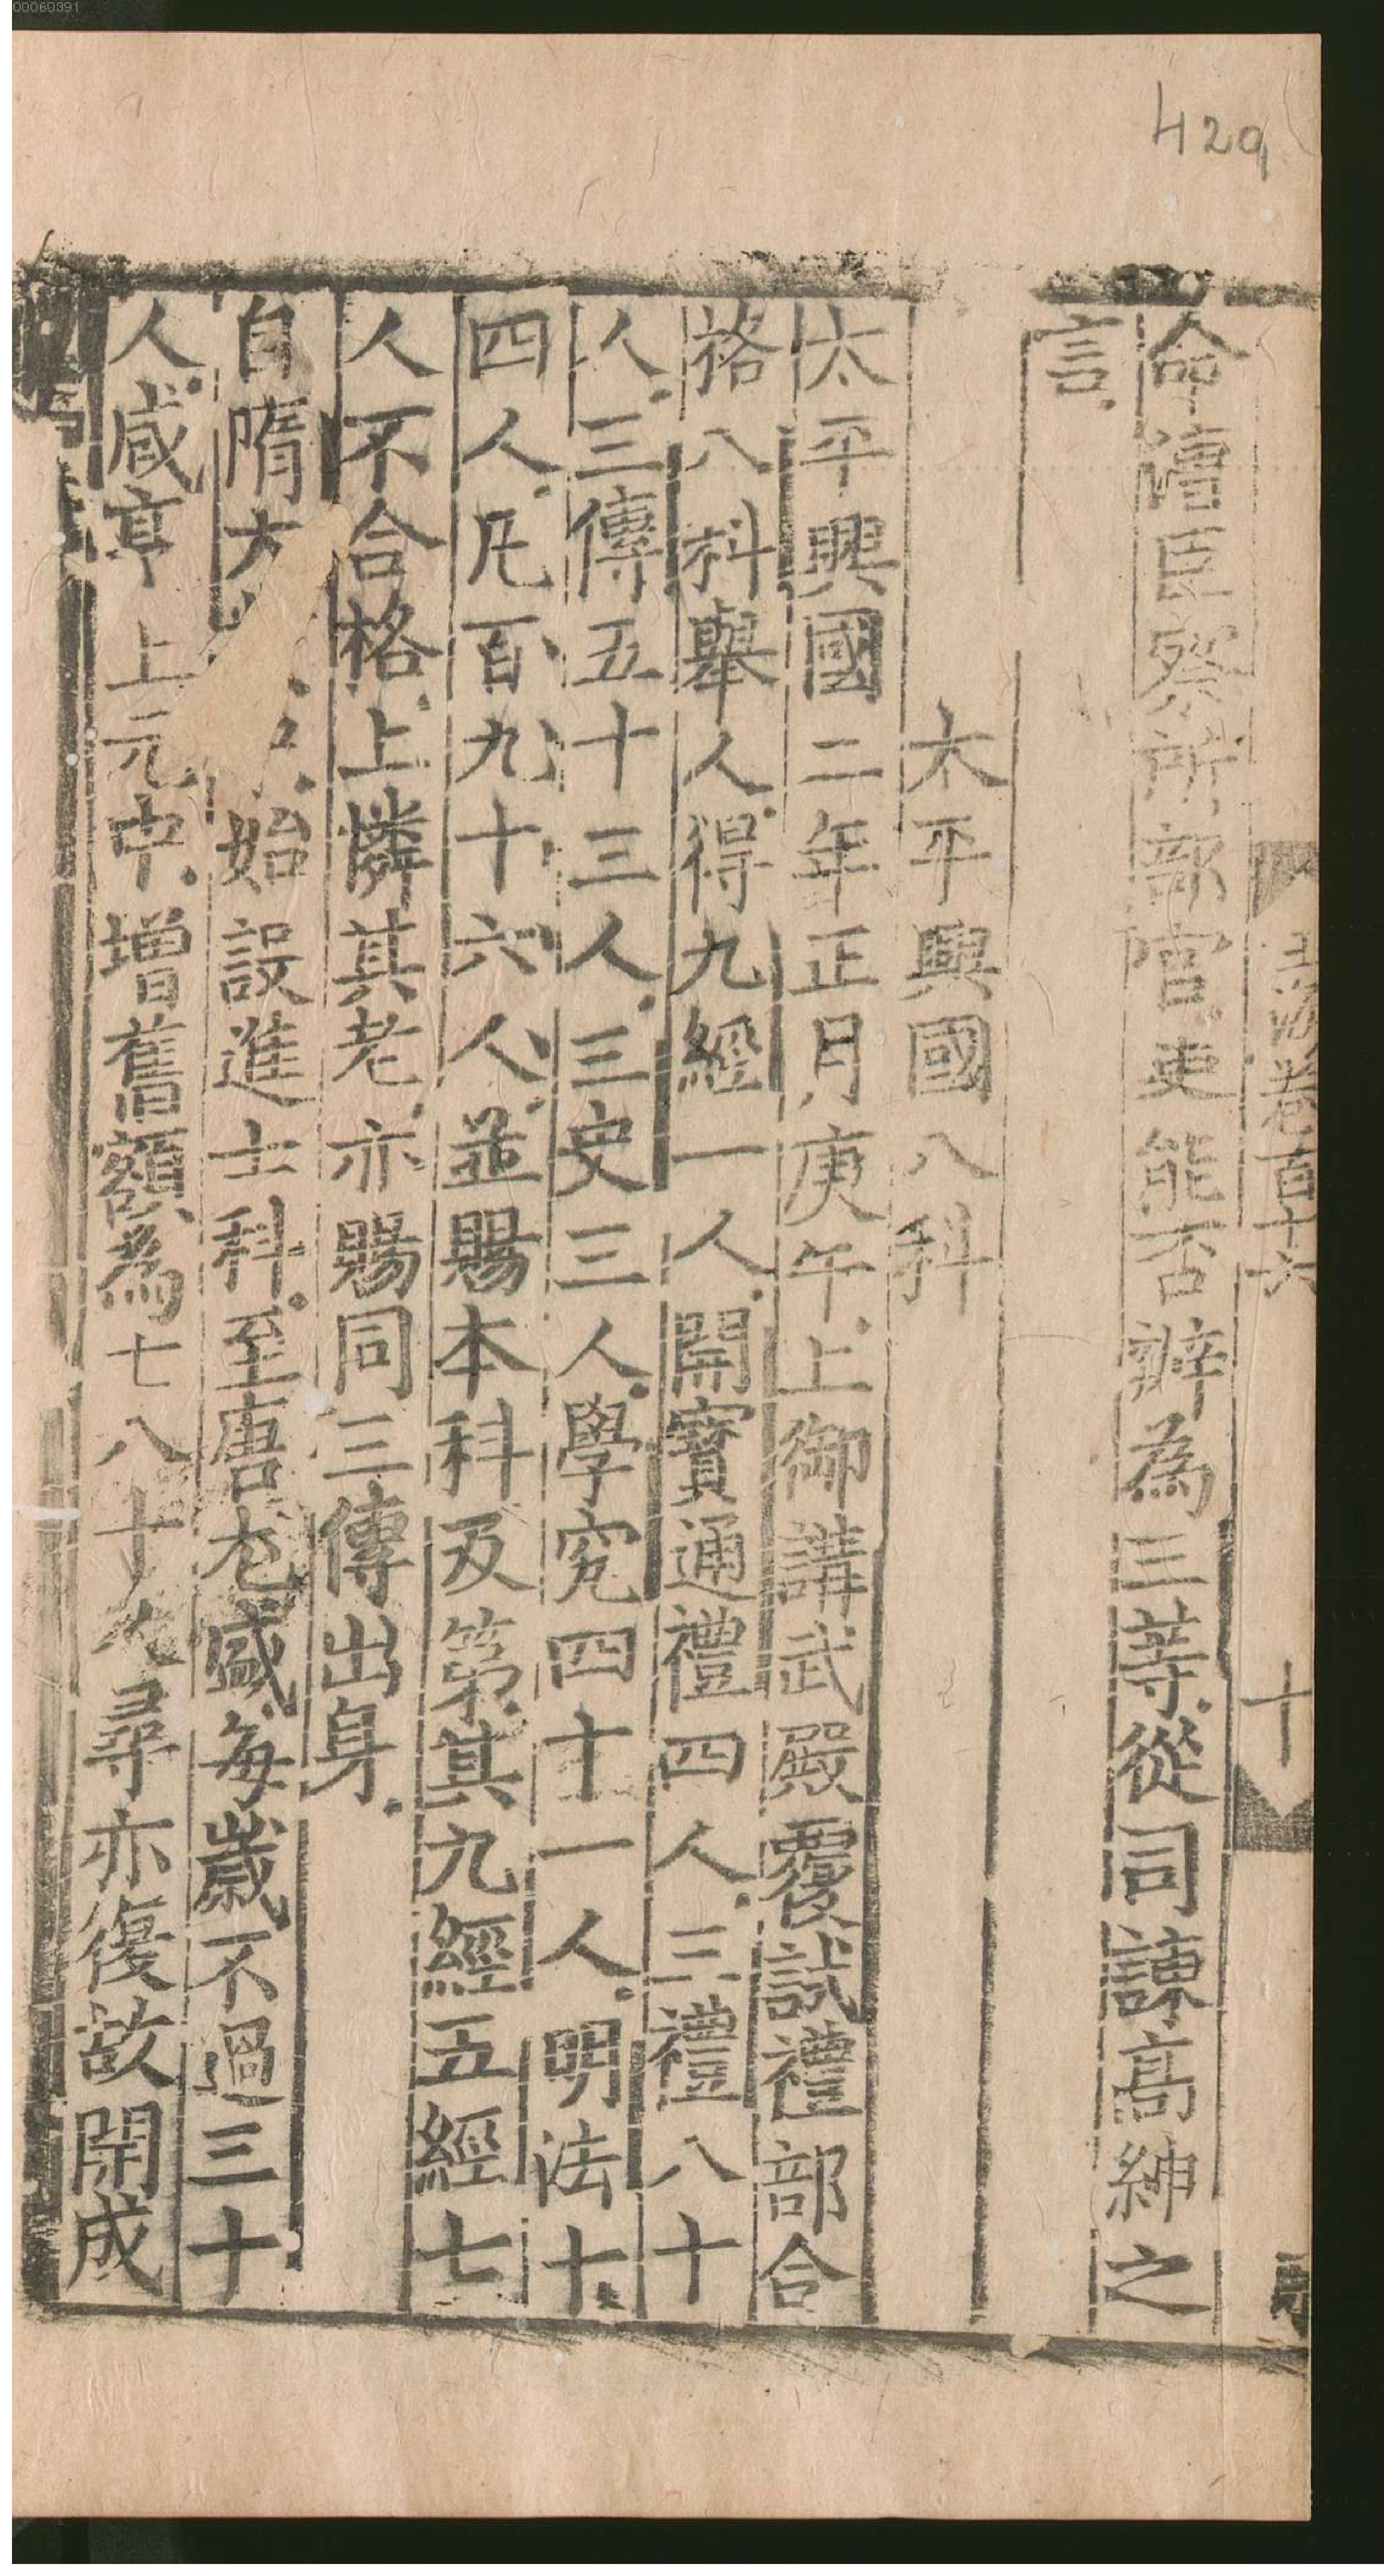 00060391
429
玉海卷百十六
十
命漕臣察所部官吏能否辨為三等從司諫高紳之
言
太平興國八科
太平興國二年正月庚午上御講武殿覆試禮部合
格八科舉人得九經一人開寶通禮四人三禮八十
人三傳五十三人三史三人學究四十一人明法十
四人凡百九十六人並賜本科及第其九經五經七
人不合格上憐其老亦賜同三傳出身
自隋大始設進士科至唐尤盛每歲不過三十
人咸亨上元中增舊額為七八十人尋亦復故開成